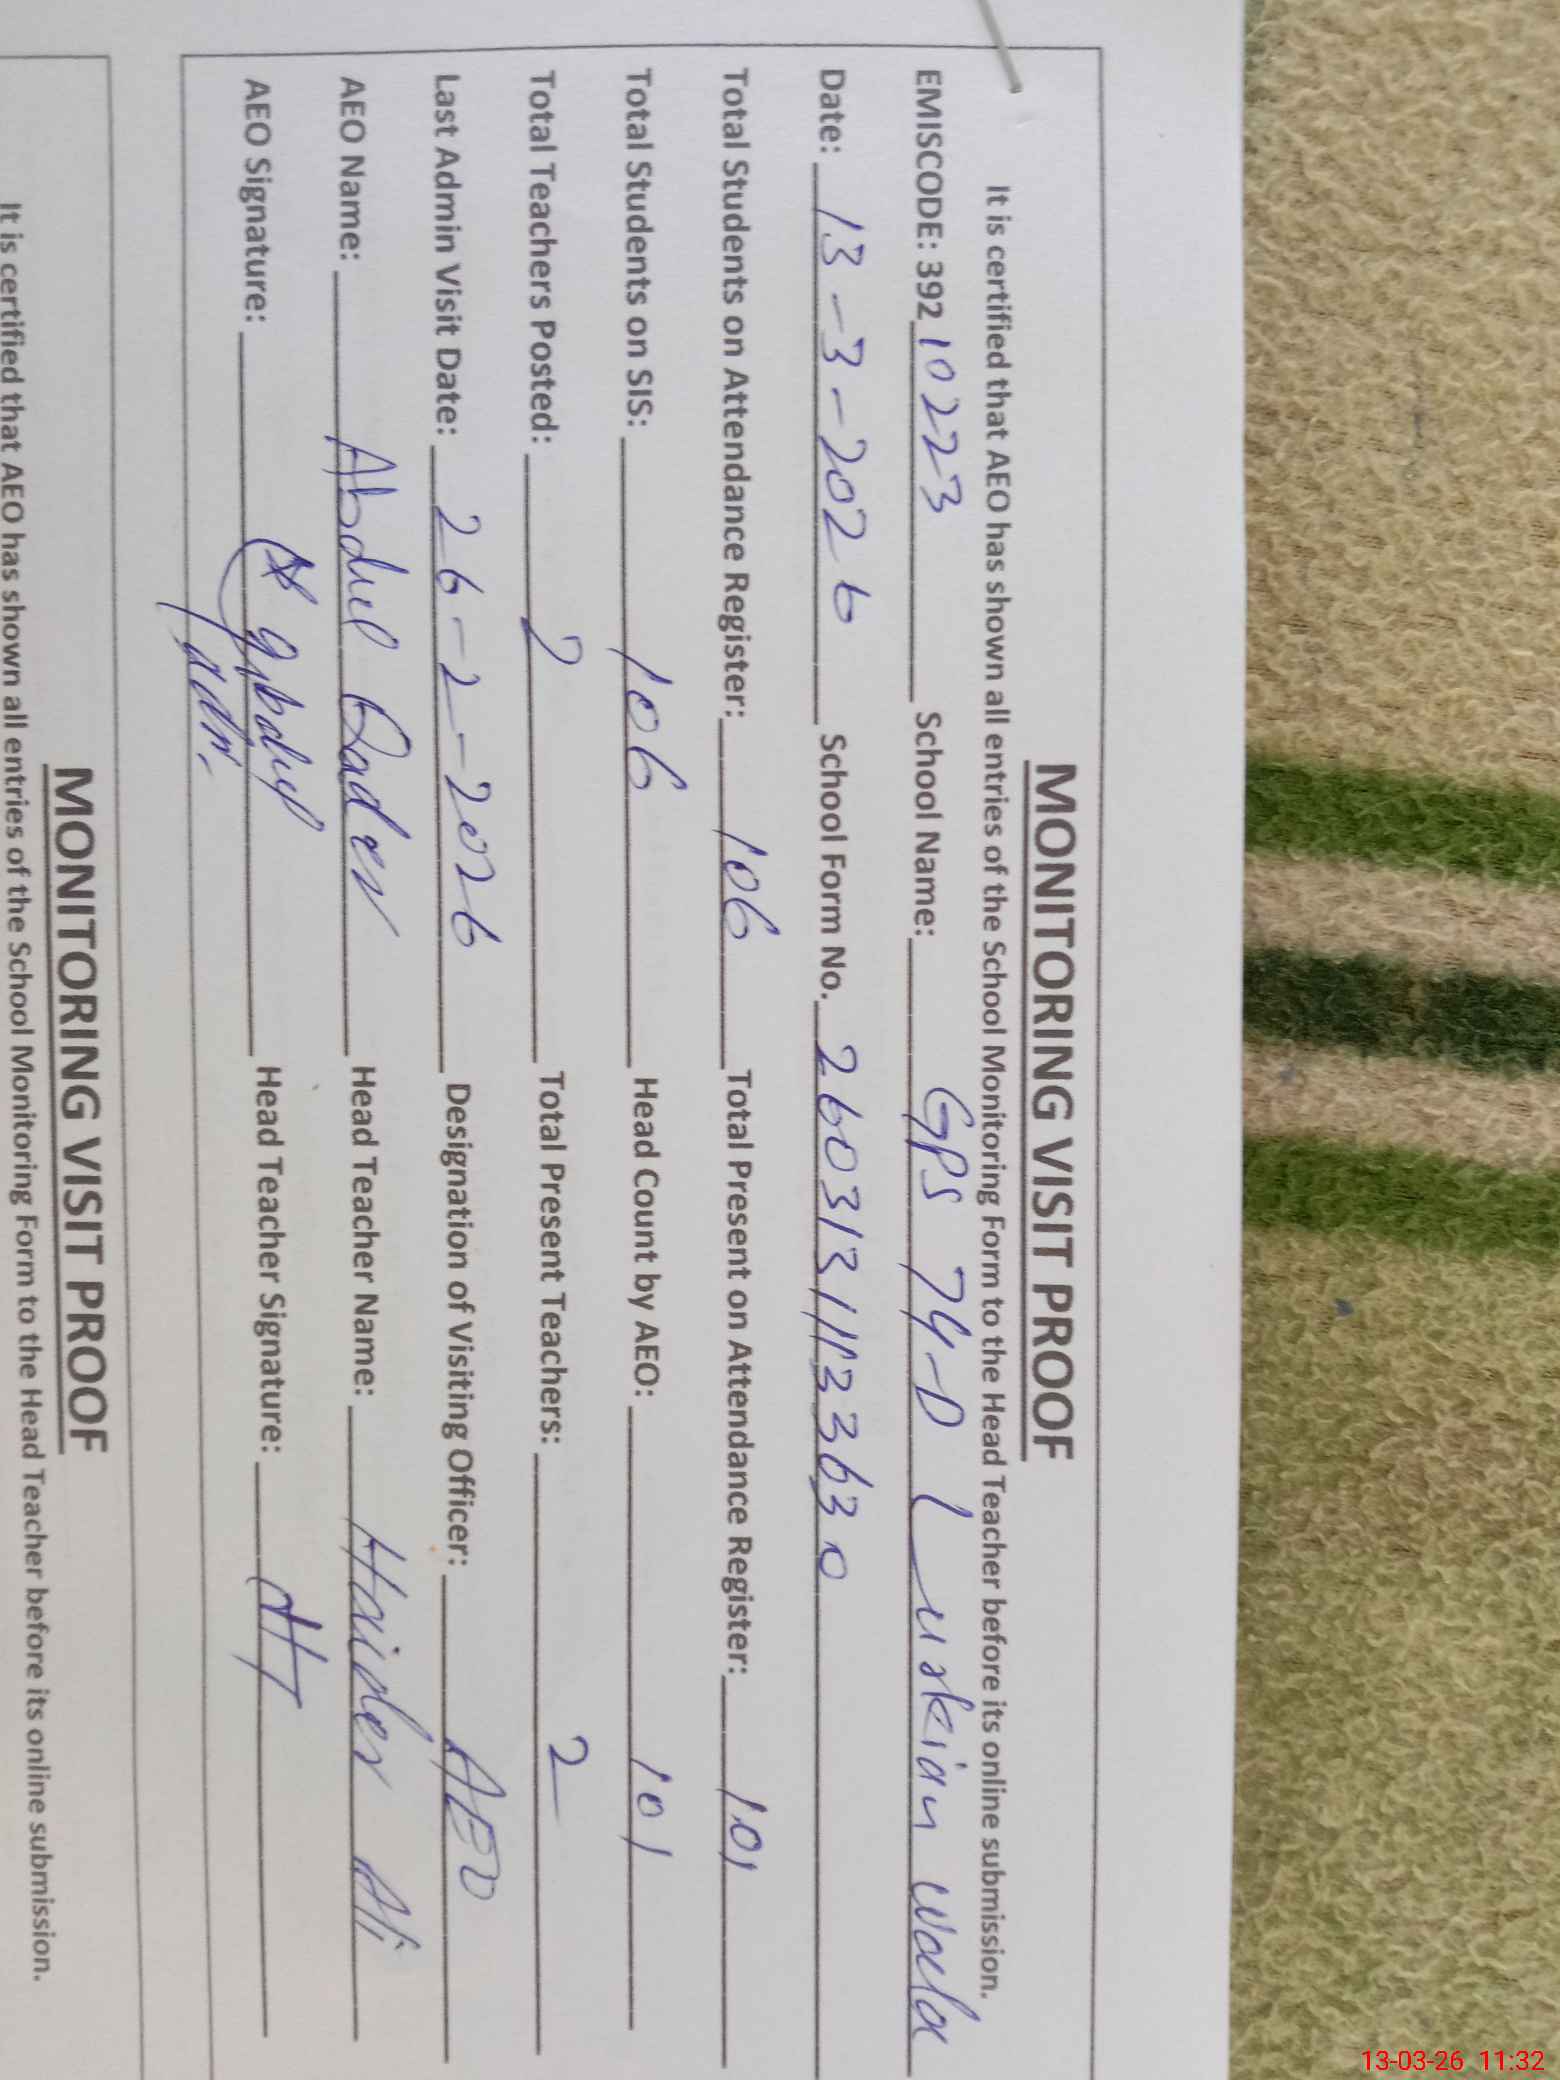 MONITORING VISIT PROOF
It is certified that AEO has shown all entries of the School Monitoring Form to the Head Teacher before its online submission.
EMISCODE: 392 10223 School Name: GPS 74-D Lurkian wala
Date: 13-3-2026 School Form No. 260313113630
Total Students on Attendance Register: 106 Total Present on Attendance Register: 101
Total Students on SIS: 106 Head Count by AEO: 101
Total Teachers Posted: 2 Total Present Teachers: 2
Last Admin Visit Date: 26-2-2026 Designation of Visiting Officer: AEO
AEO Name: Abdul Qader Head Teacher Name: Haider Ali
AEO Signature: Head Teacher Signature:
MONITORING VISIT PROOF
It is certified that AEO has shown all entries of the School Monitoring Form to the Head Teacher before its online submission.
13-03-26 11:32